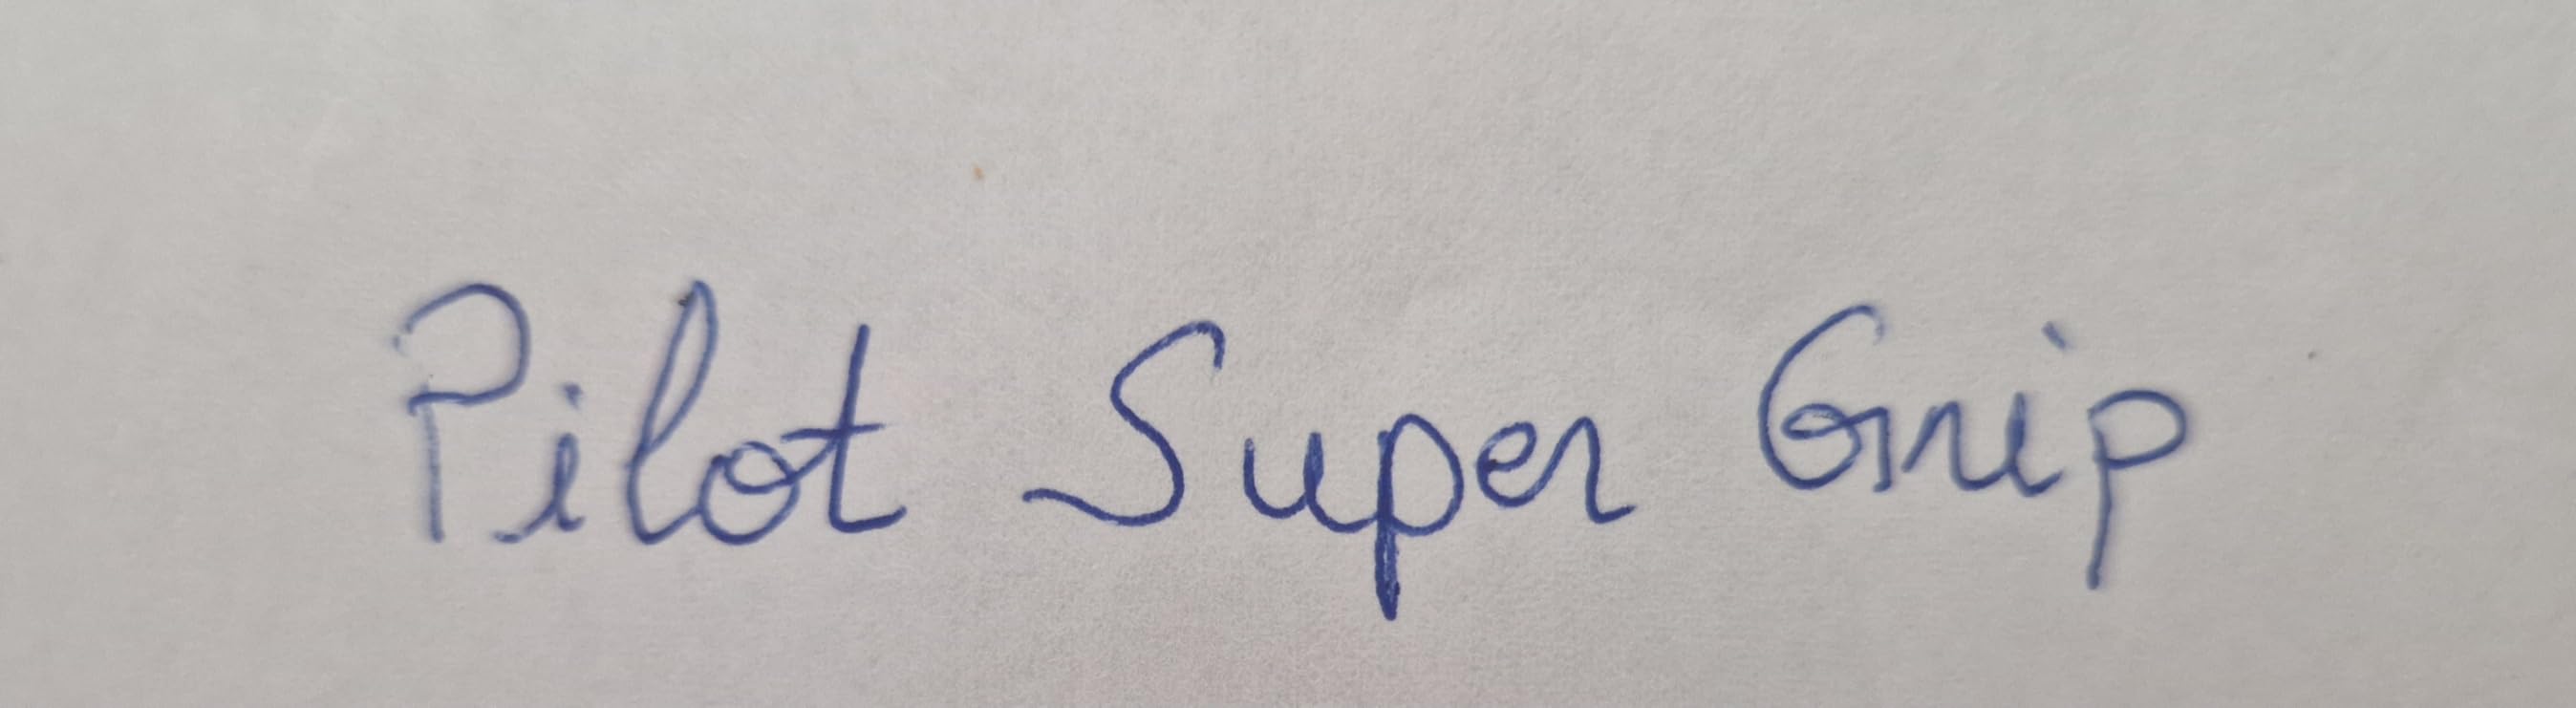 Pilot Super Grip